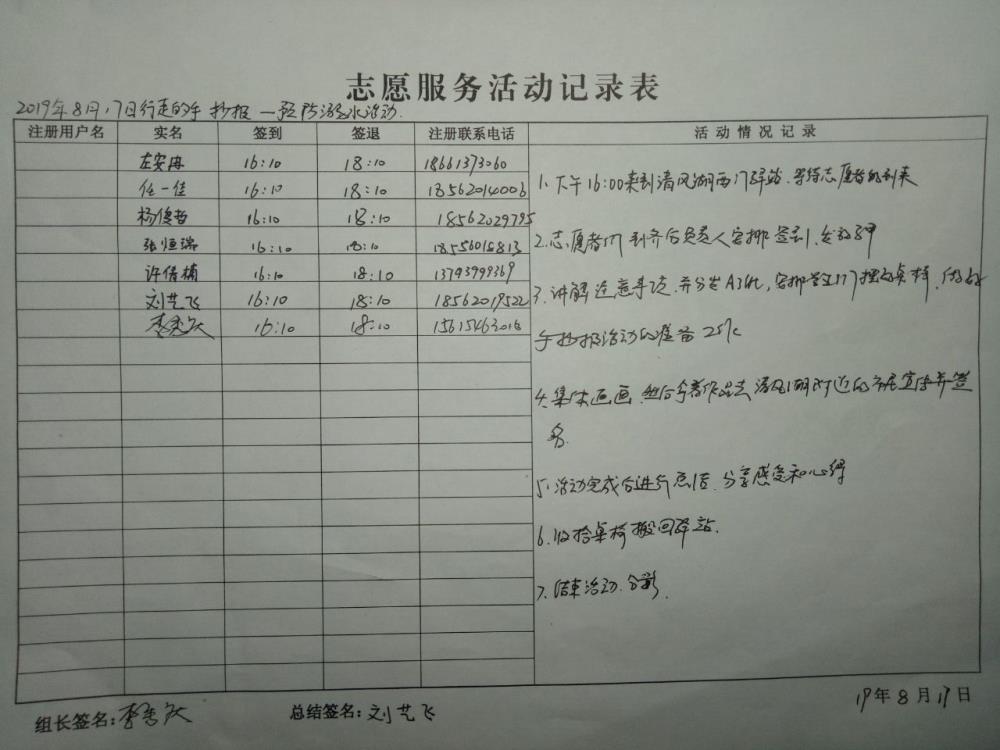 志愿服务活动记录表
2019年8月17日行走的手抄报—预防溺水活动.
注册用户名 实名 签到 签退 注册联系电话 活动情况记录
左安冉 16:10 18:10 18661373060
任一佳 16:10 18:10 18562014006
杨俊哲 16:10 18:10 18562029795
张恒瑞 16:10 18:10 18556015813
许倩楠 16:10 18:10 13793999369
刘艺飞 16:10 18:10 18562019522
16:10 18:10 15615463016
1、下午16:00来到清风湖西门驿站.等待志愿者的到来
2.志愿者们到齐后负责人安排签到、
3、讲解注意事项.并分发A3纸,安排学生们摆放桌椅,做好
手抄报活动的准备
4.集体画画.然后拿着作品去清风湖附近的市民宣传并签
名.
5、活动完成后进行总结.分享感受和心得
6.收拾桌椅搬回驿站.
7.结束活动.合影.
组长签名: 总结签名:刘艺飞
19年8月17日